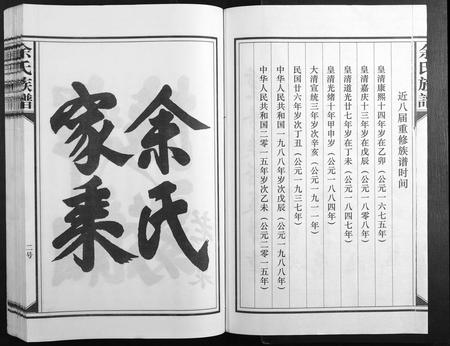 余氏族譜
近八届重修族谱时间
皇清康熙十四年岁在乙卯（公元一六七五年）
皇清嘉庆十三年岁在戊辰（公元一八零八年）
皇清道光廿七年岁在丁未（公元一八四七年）
皇清光绪十年甲申岁（公元一八八四年）
大清宣统三年岁次辛亥（公元一九一一年）
民国廿六年岁次丁丑（公元一九三七年）
中华人民共和国一九八八年岁次戊辰（公元一九八八年）
中华人民共和国二零一五年岁次乙未（公元二零一五年）
余氏
家乘
二号
余氏族譜